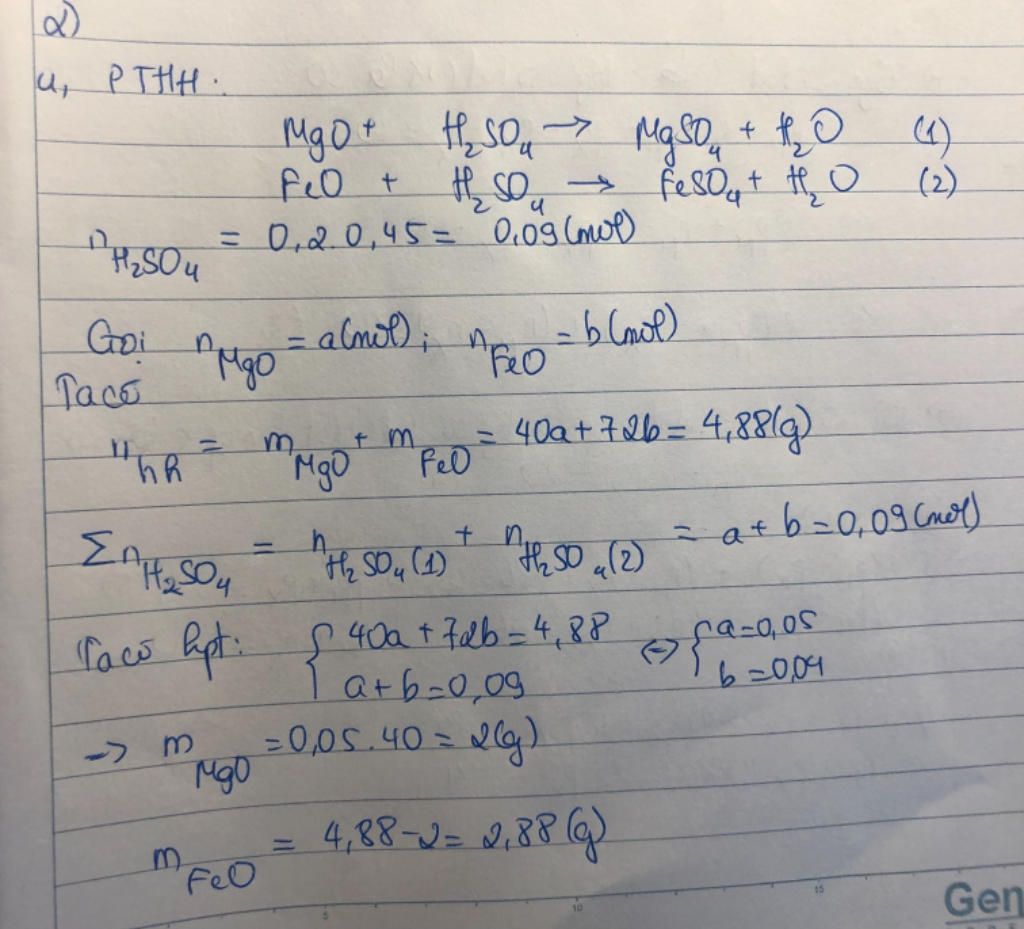 2)
a, PTHH:
MgO + H₂SO₄ → MgSO₄ + H₂O (1)
FeO + H₂SO₄ → FeSO₄ + H₂O (2)
n H₂SO₄ = 0,2.0,45 = 0,09 (mol)
Gọi n MgO = a (mol); n FeO = b (mol)
Ta có
m hh = m MgO + m FeO = 40a + 72b = 4,88 (g)
Σn H₂SO₄ = n H₂SO₄ (1) + n H₂SO₄ (2) = a + b = 0,09 (mol)
Ta có hpt: { 40a + 72b = 4,88 <=> { a = 0,05
a + b = 0,09 b = 0,04
-> m MgO = 0,05.40 = 2 (g)
m FeO = 4,88 - 2 = 2,88 (g)
5 10 15
Gen